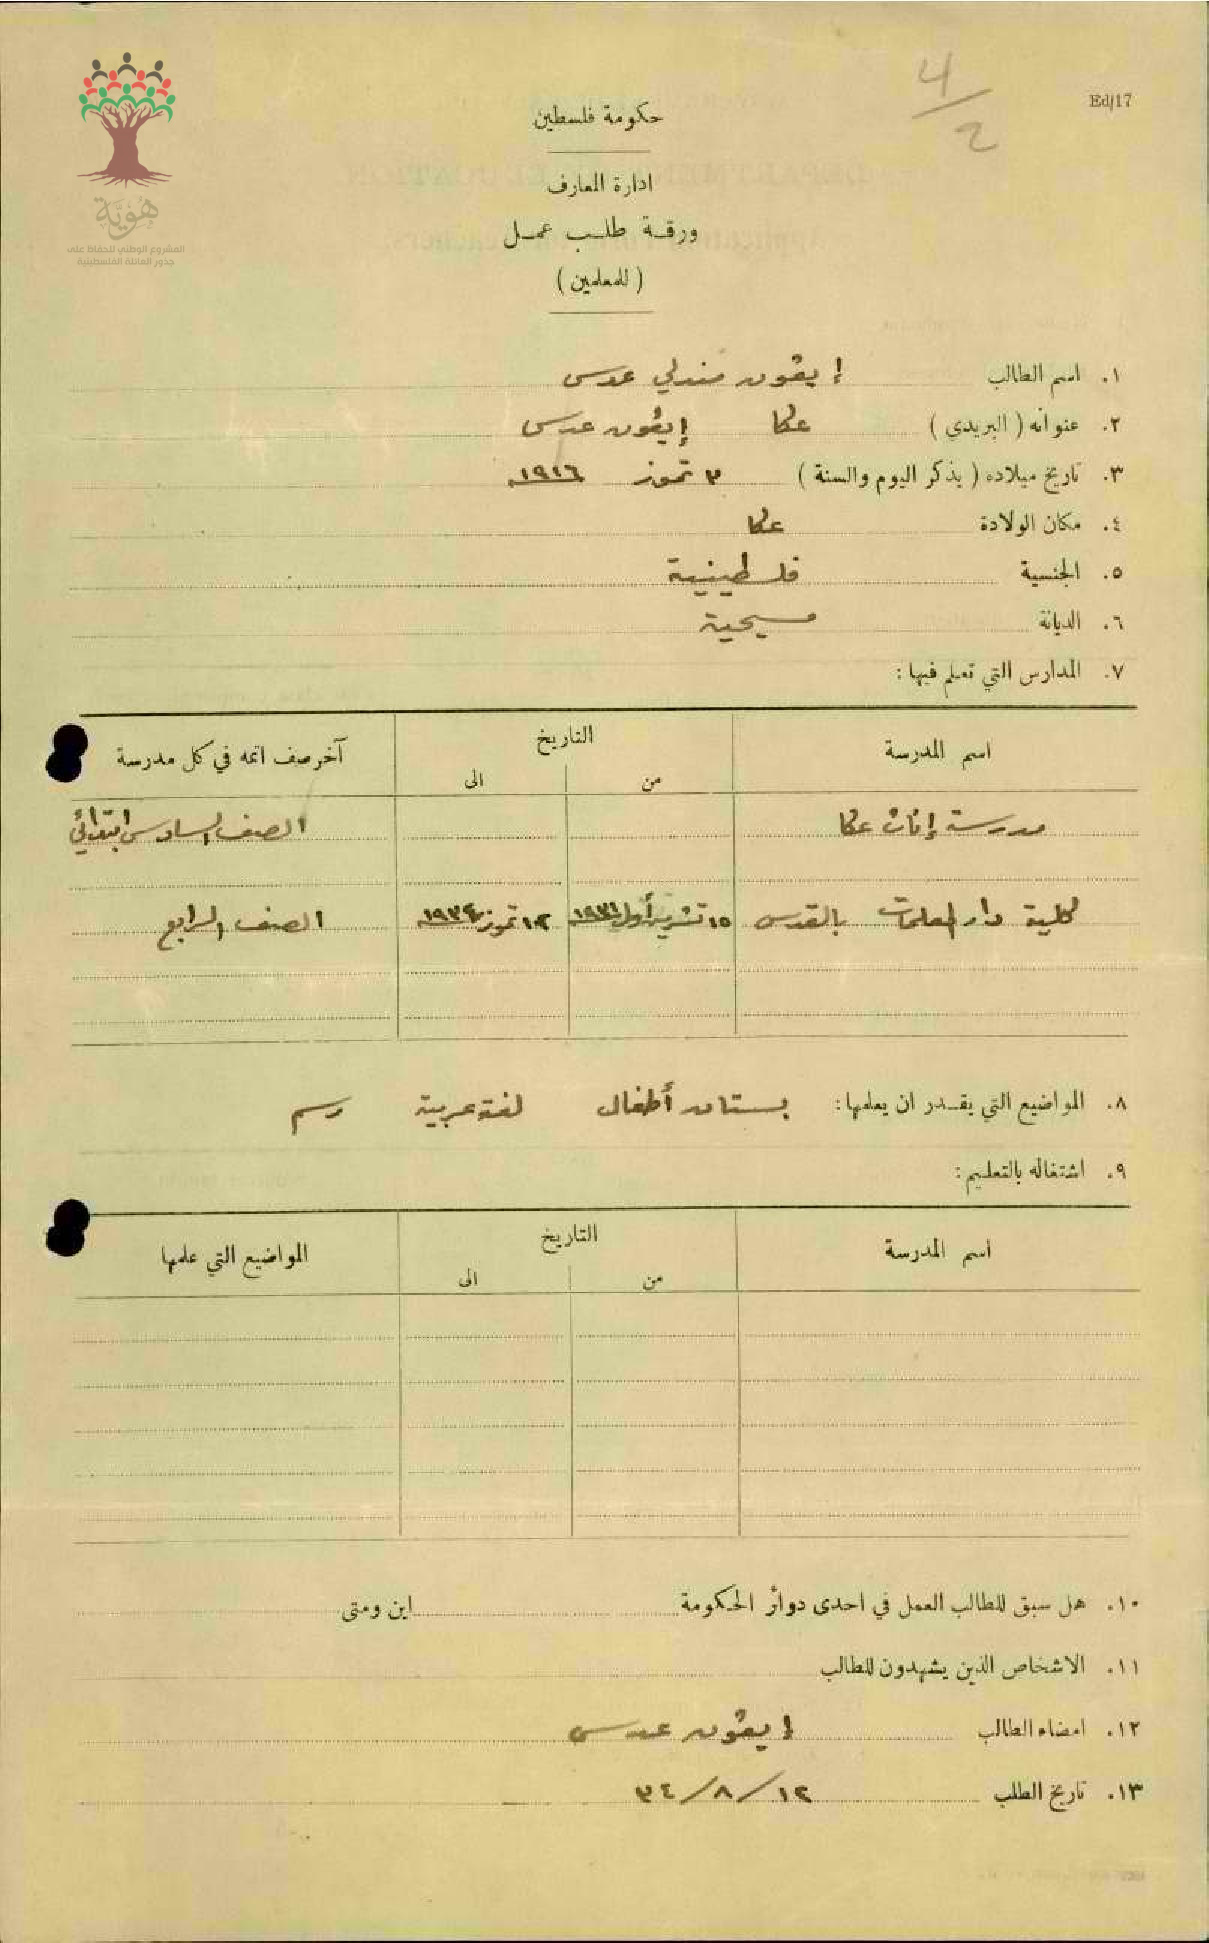 4/2
Ed/17
هُوِيَّة
المشروع الوطني للحفاظ على
جذور العائلة الفلسطينية
حكومة فلسطين
ادارة المعارف
ورقة طلب عمل
(للمعلمين)
١. اسم الطالب إيڤون مندلي عدسي
٢. عنوانه (البريدي) عكا إيڤون عدسي
٣. تاريخ ميلاده (بذكر اليوم والسنة) ٣ تموز ١٩١٦
٤. مكان الولادة عكا
٥. الجنسية فلسطينية
٦. الديانة مسيحية
٧. المدارس التي تعلم فيها:
اسم المدرسة التاريخ آخر صف اتمه في كل مدرسة
من الى
مدرسة إناث عكا الصف السادس ابتدائي
كلية دار المعلمات بالقدس ١٥ تشرين أول ١٩٣١ ١٢ تموز ١٩٣٤ الصف الرابع
٨. المواضيع التي يقدر ان يعلمها: بستان أطفال لغة عربية رسم
٩. اشتغاله بالتعليم:
اسم المدرسة التاريخ المواضيع التي علمها
من الى
١٠. هل سبق للطالب العمل في احدى دوائر الحكومة اين ومتى
١١. الاشخاص الذين يشهدون للطالب
١٢. امضاء الطالب إيڤون عدسي
١٣. تاريخ الطلب ١٢/٨/٣٤